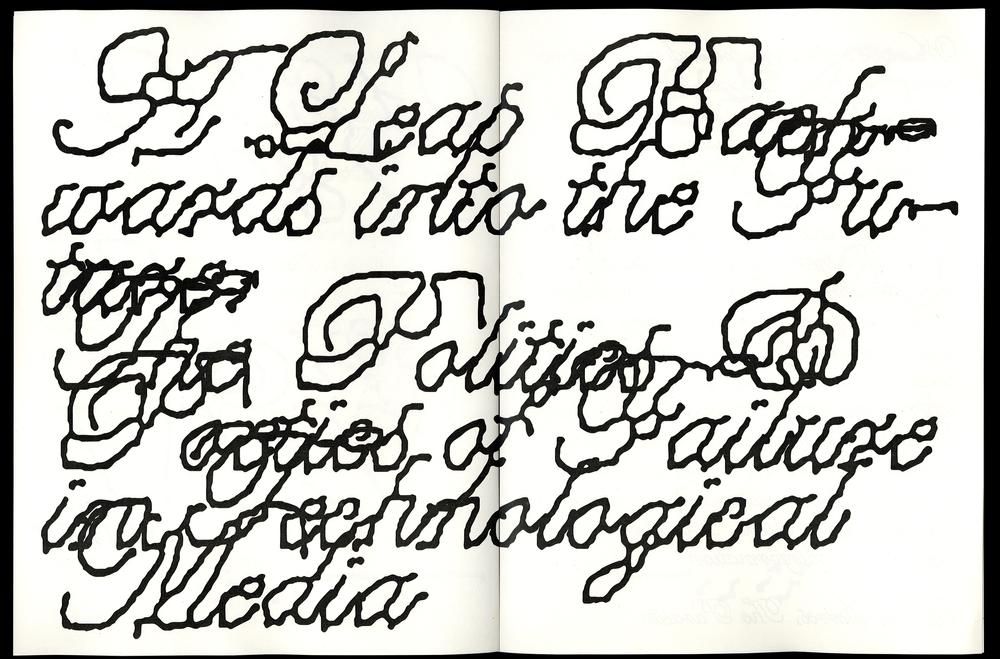 A Leap Back-
wards into the Fu-
ture
The Politics &
Poetics of Failure
in Technological
Media